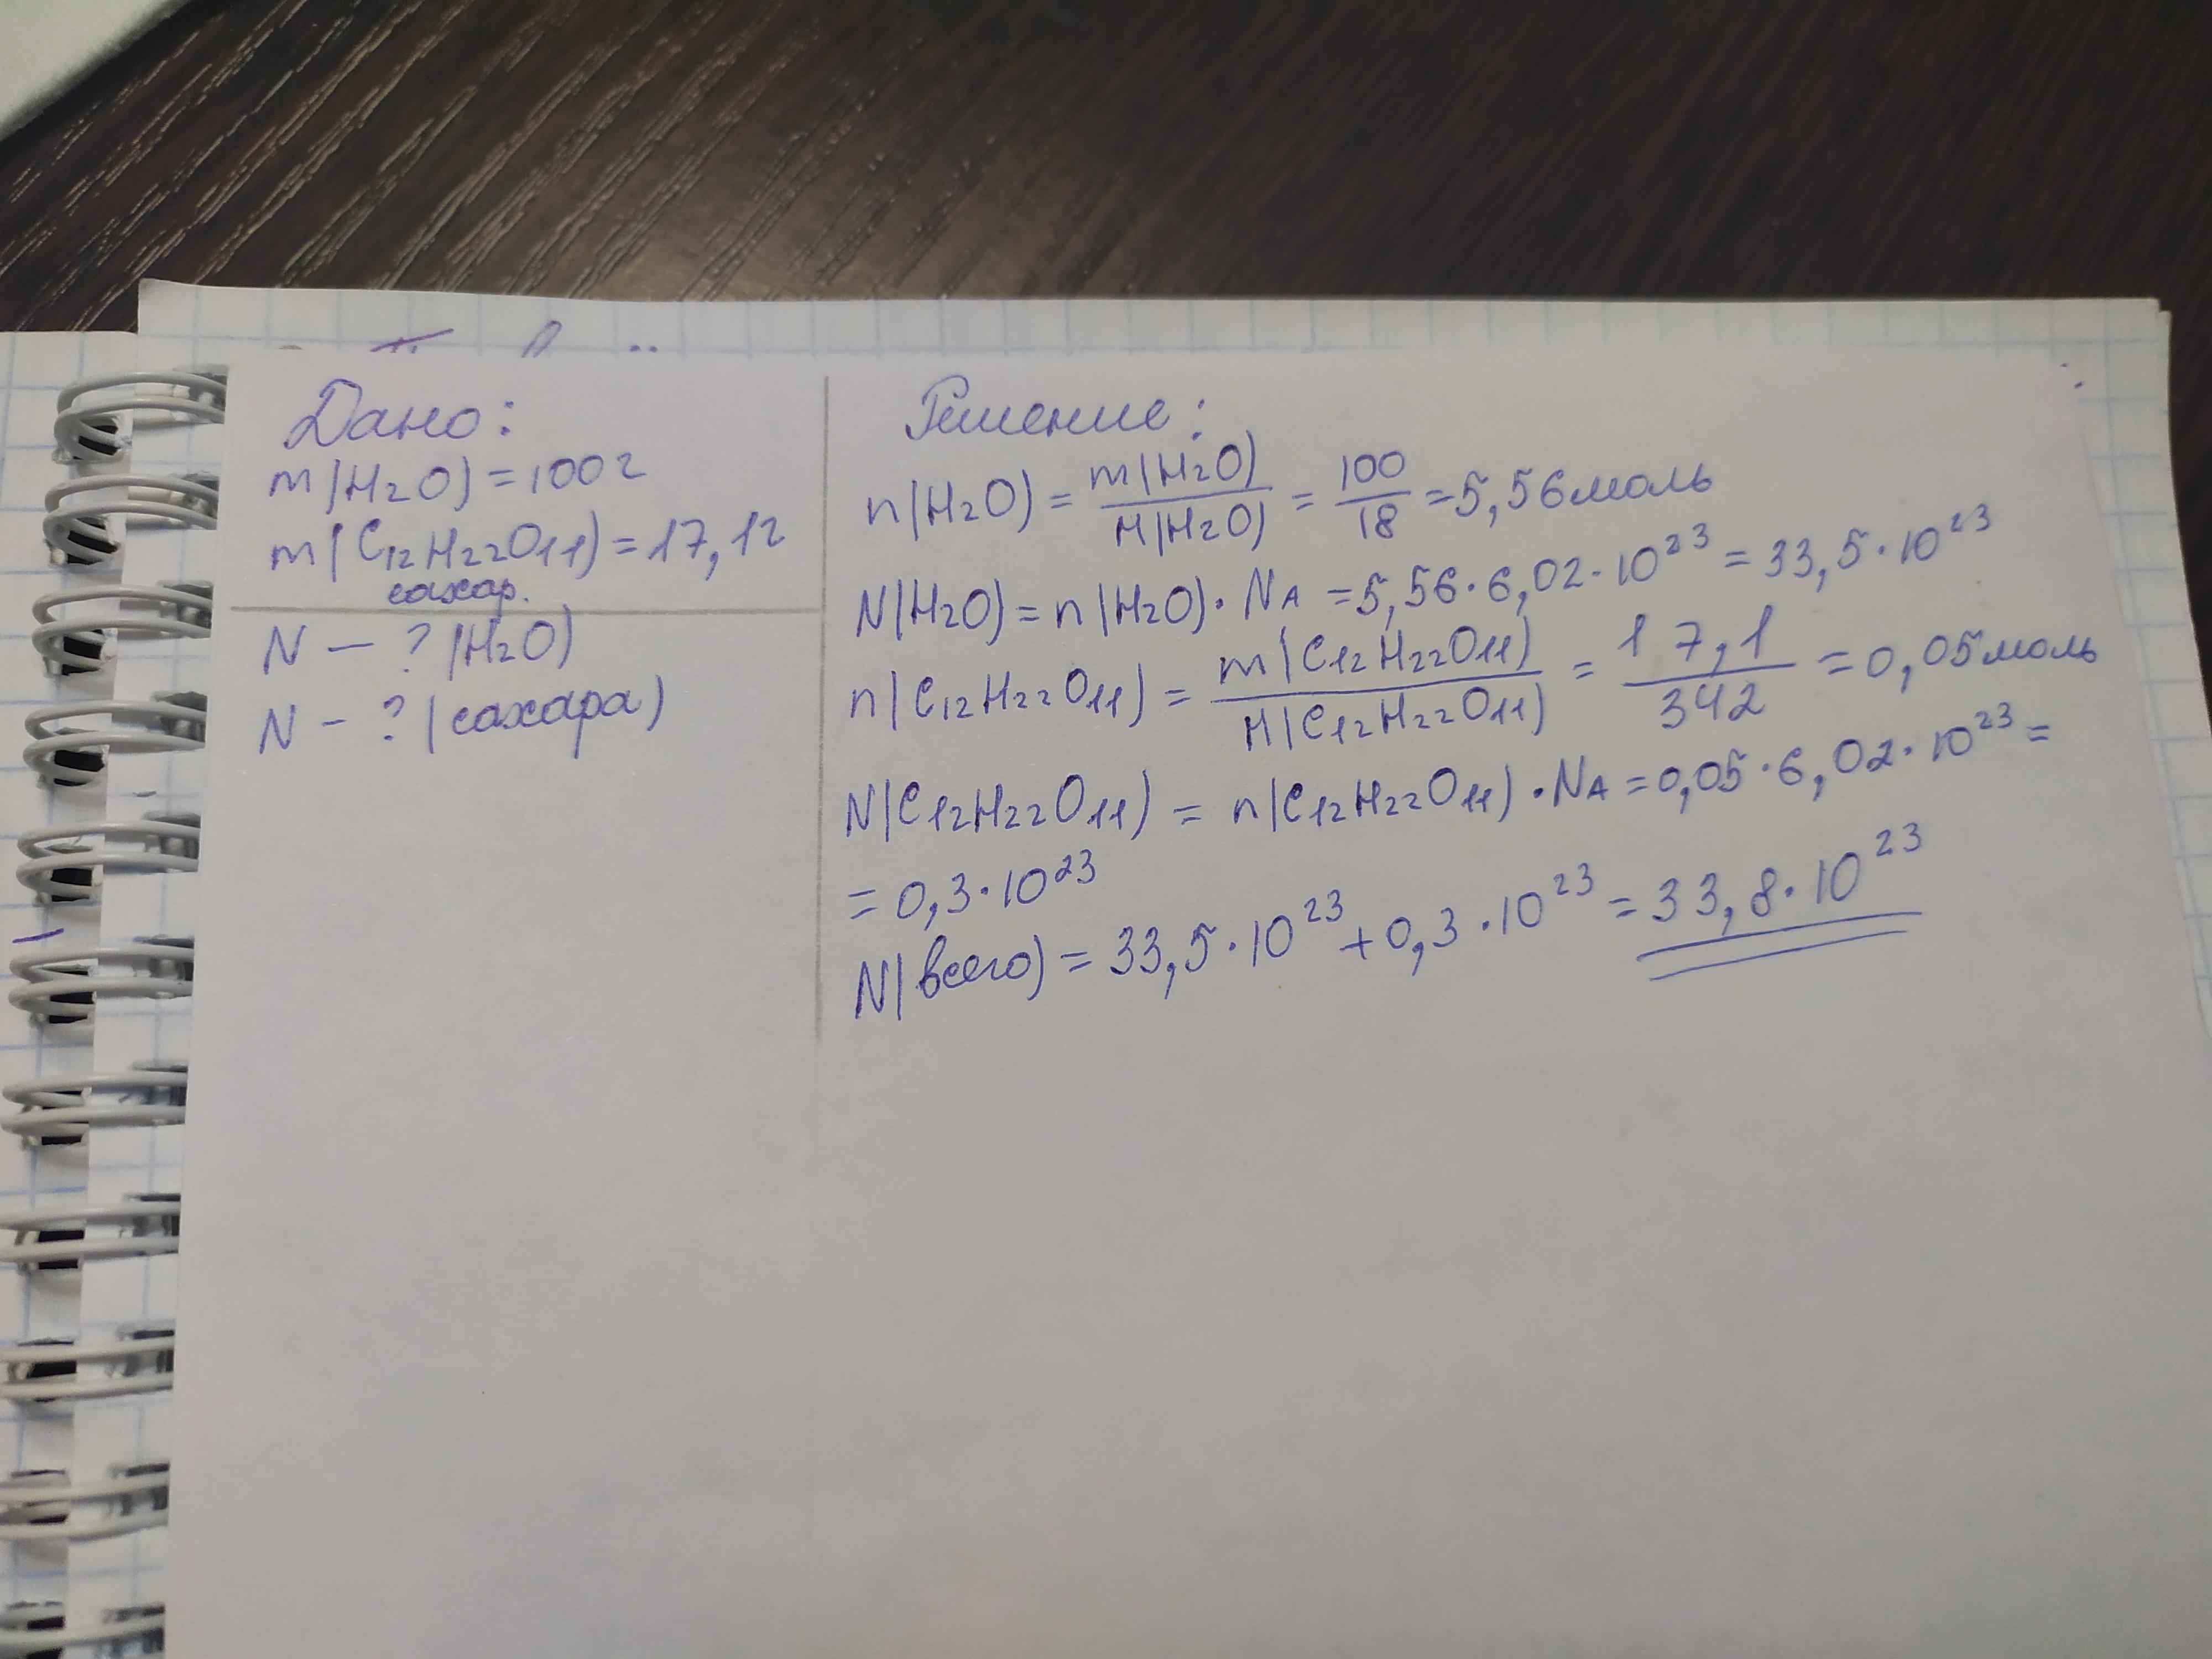 Дано:
m(H₂O) = 100г
m(C₁₂H₂₂O₁₁) = 17,1г
сахар.
N — ? (H₂O)
N - ? (сахара)
Решение:
n(H₂O) = m(H₂O)/M(H₂O) = 100/18 = 5,56моль
N(H₂O) = n(H₂O) · NA = 5,56 · 6,02 · 10²³ = 33,5 · 10²³
n(C₁₂H₂₂O₁₁) = m(C₁₂H₂₂O₁₁)/M(C₁₂H₂₂O₁₁) = 17,1/342 = 0,05моль
N(C₁₂H₂₂O₁₁) = n(C₁₂H₂₂O₁₁) · NA = 0,05 · 6,02 · 10²³ =
= 0,3 · 10²³
N(всего) = 33,5 · 10²³ + 0,3 · 10²³ = 33,8 · 10²³